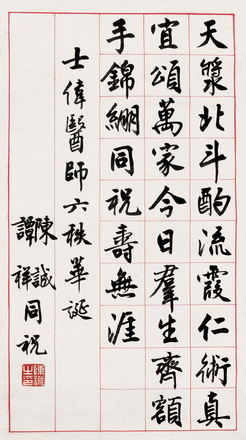 天漿北斗酌流霞仁術真
宜頌萬家今日羣生齊額
手錦綳同祝壽無涯
士偉醫師六秩華誕
陳誠
譚祥同祝